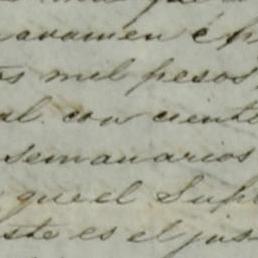 gravamen é h
mil pesos,
al con ciento
semanarios
que el Sup
ste es el jus